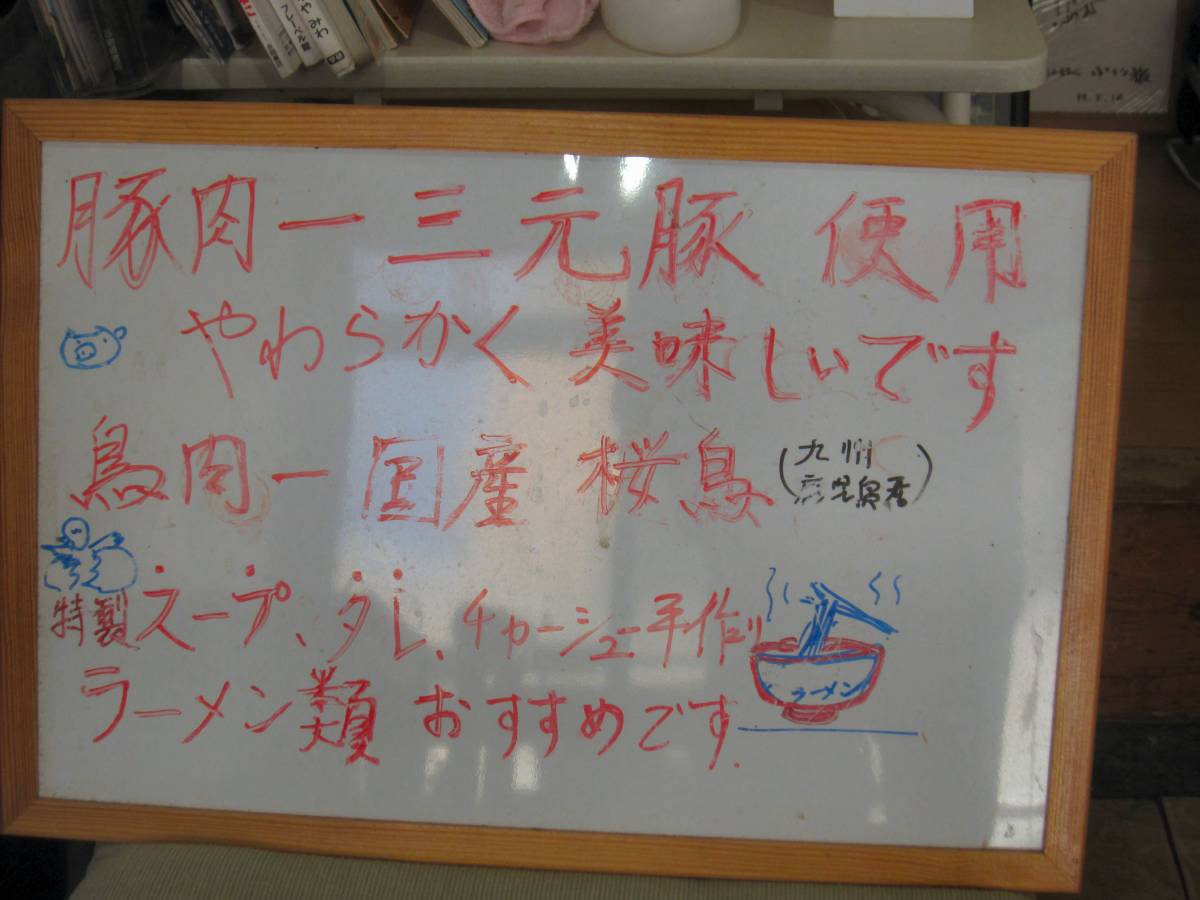 豚肉ー三元豚 使用
やわらかく美味しいです
鳥肉ー国産 桜鳥(九州
鹿児島産)
特製スープ、タレ、チャーシュー手作り
ラーメン
ラーメン類 おすすめです.